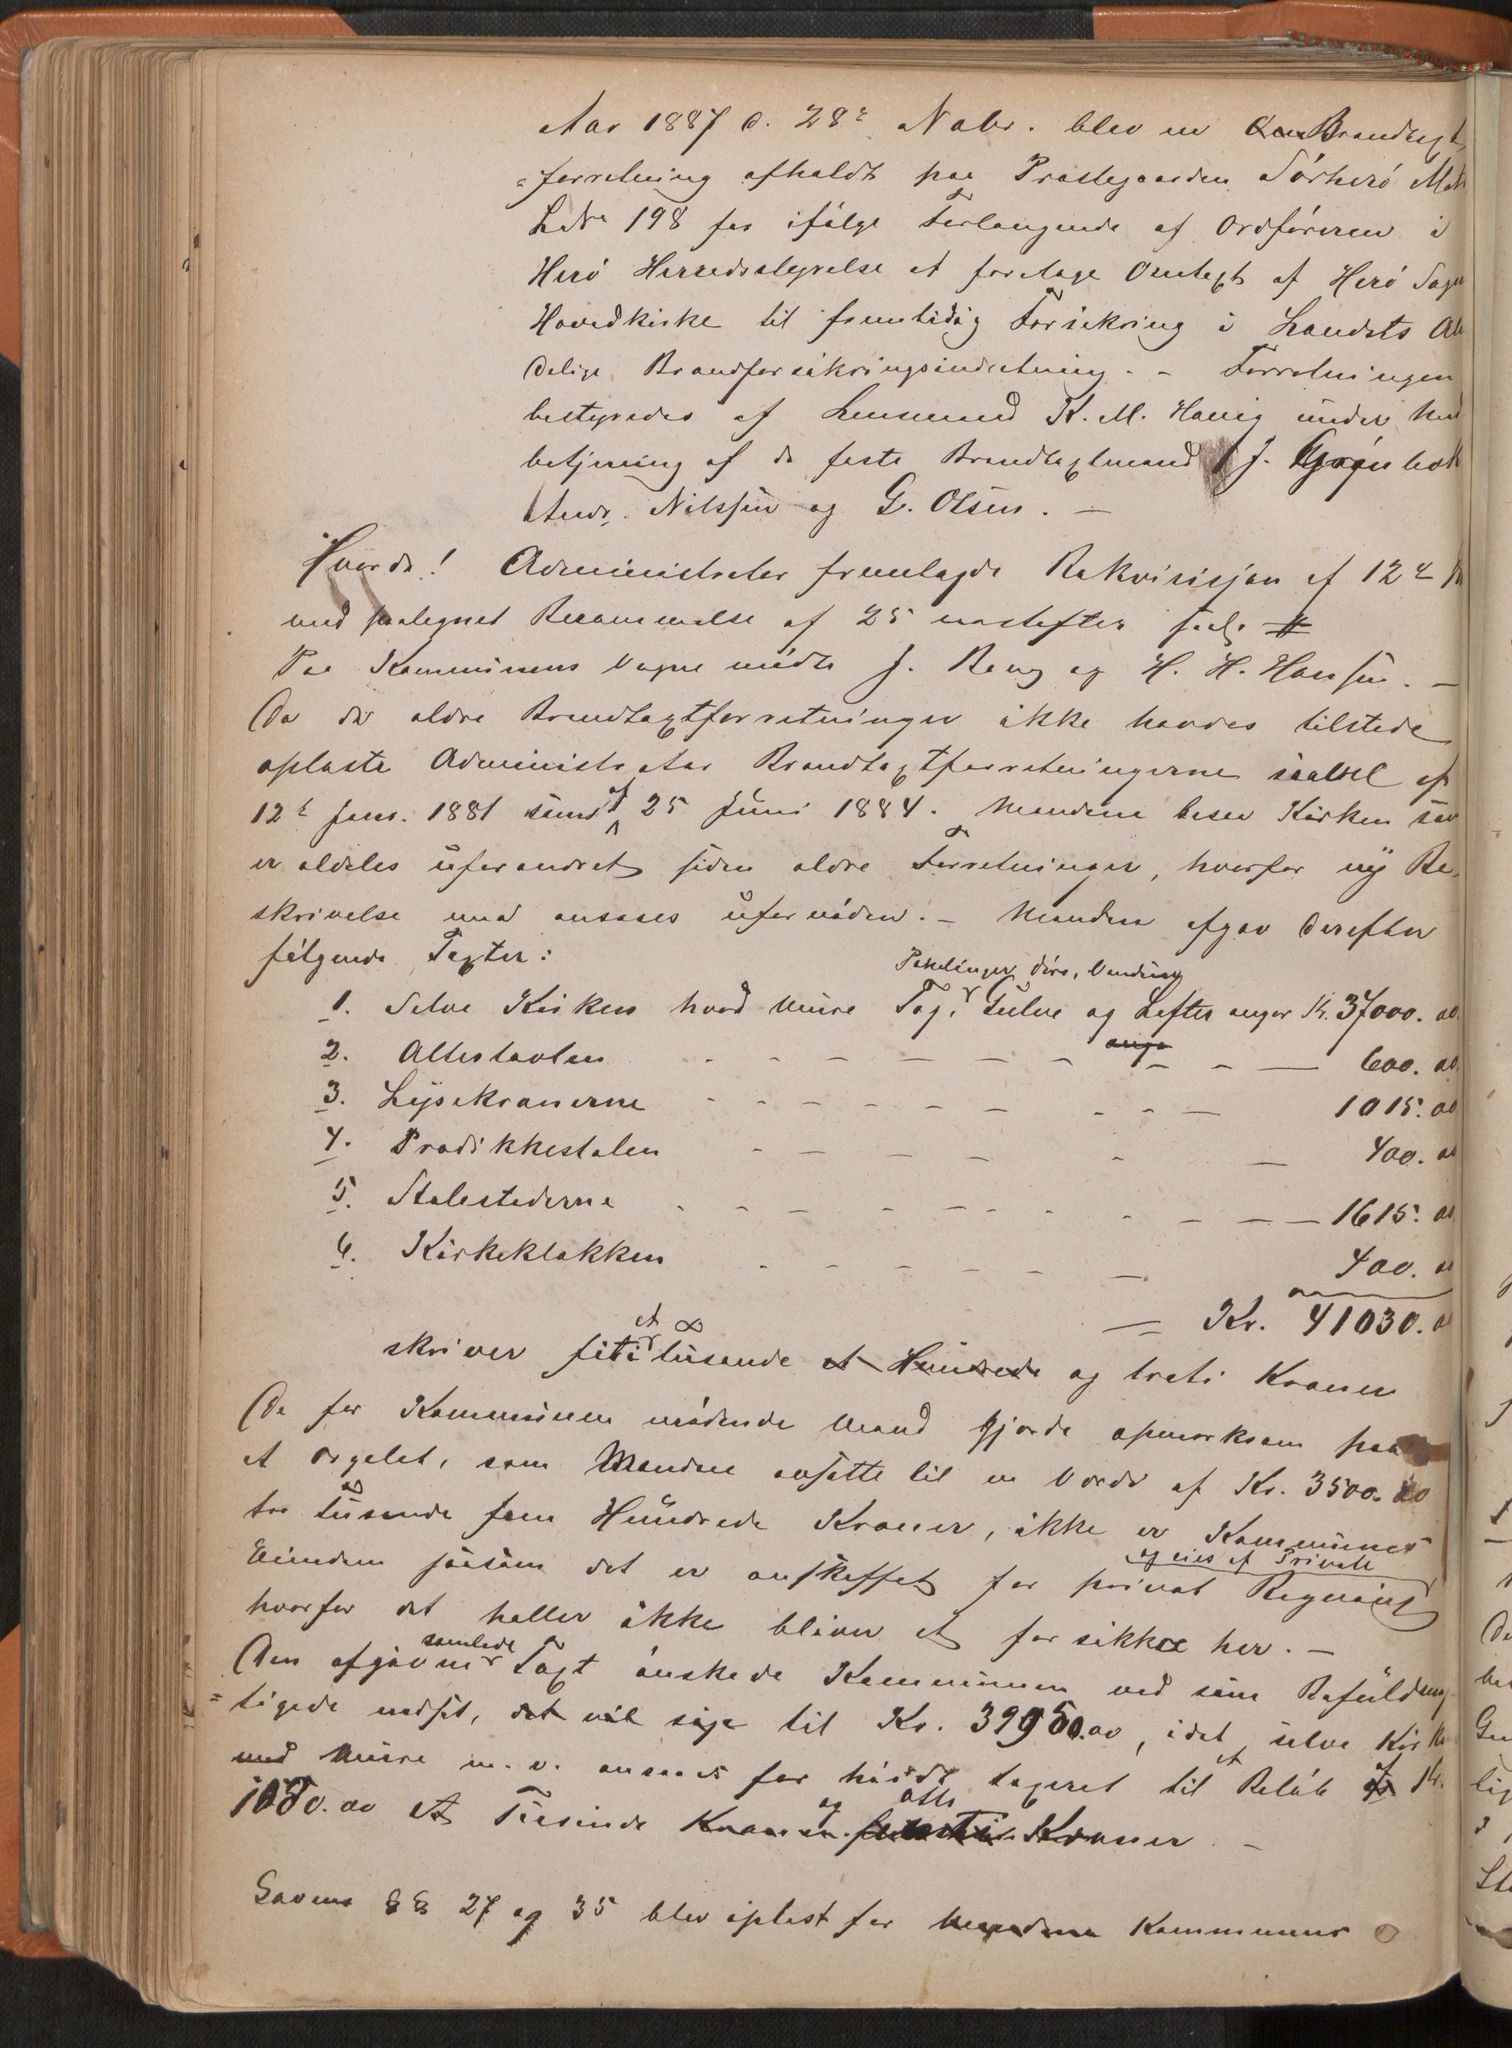 Aar 1887 d. 28de Novbr. blev en Brandtaxt
=forretning afholdt paa Præstegaarden Sørherø Mat
L No 198 for ifølge Forlangende af Ordføreren i
Herø Herredsstyrelse at foretage Omtaxt af Herø Sogns
Hovedkirke til fremtidig Forsikring i Landets Al
delige Brandforsikringsindretning. - Forretningen
bestyredes af Lensmand K. M. Havig under Med
betjening af de faste Brandtaxtmænd J. Grønbæk
Andr. Nilssen og G. Olsen. -
Hvorda! Administrator fremlagde Rekvisisjon af 12te
med paategnet Berammelse af 25 næstefter
Paa Kommunens Vegne mødte J. Bang og H. H. Hansen. -
Da de ældre Brandtaxtforretninger ikke havdes tilstede
oplæste Administrator Brandtaxtforretningerne saavel af
12te Janr. 1881 samt af 25 Juni 1884. Mændene besaa Kirken som
er aldeles uforandret siden ældre Forretninger, hvorfor ny Be-
skrivelse maa ansees ufornøden. - Mændene afgav derefter
følgende Taxter:
Panelinger, Døre, Vinduer
1. Selve Kirken hvad Mure Tag, Gulve og Lofter angaar Kr. 37000. 00
2. Altertavlen - - - - - - anga - - 600. 00
3. Lysekronerne - - - - - - - - - 1015. 00
4. Prædikkestolen - - - - - - 400. 00
5. Stolestaderne - - - - - - - - - 1615. 00
6. Kirkeklokken - - - - - - - 400. 00
= Kr. 41030. 00
skriver firti et tusende et Hundrede og treti Kroner
De for Kommunen mødende Mænd gjorde opmærksom paa
at Orgelet, som Mændene ansatte til en Værdi af Kr. 3500. 00
tre tusende fem Hundrede Kroner, ikke er Kommunens
og eies af Private
Eiendom saasom det er anskaffet for privat Regning
hvorfor det heller ikke bliver at forsikkre her. -
Den afgivne samlede Taxt ønskede Kommunen ved sine Befuldmæg
=tigede nedsat, det vil sige til Kr. 39950.00, idet selve Kirken
med Mure m. v. ansaaes for høidt taxeret til et Beløb af Kr.
1080.00 Et Tusinde Kroner og otti Kroner -
Lovens §§ 27 og 35 blev oplæst for Mændene Kommunens